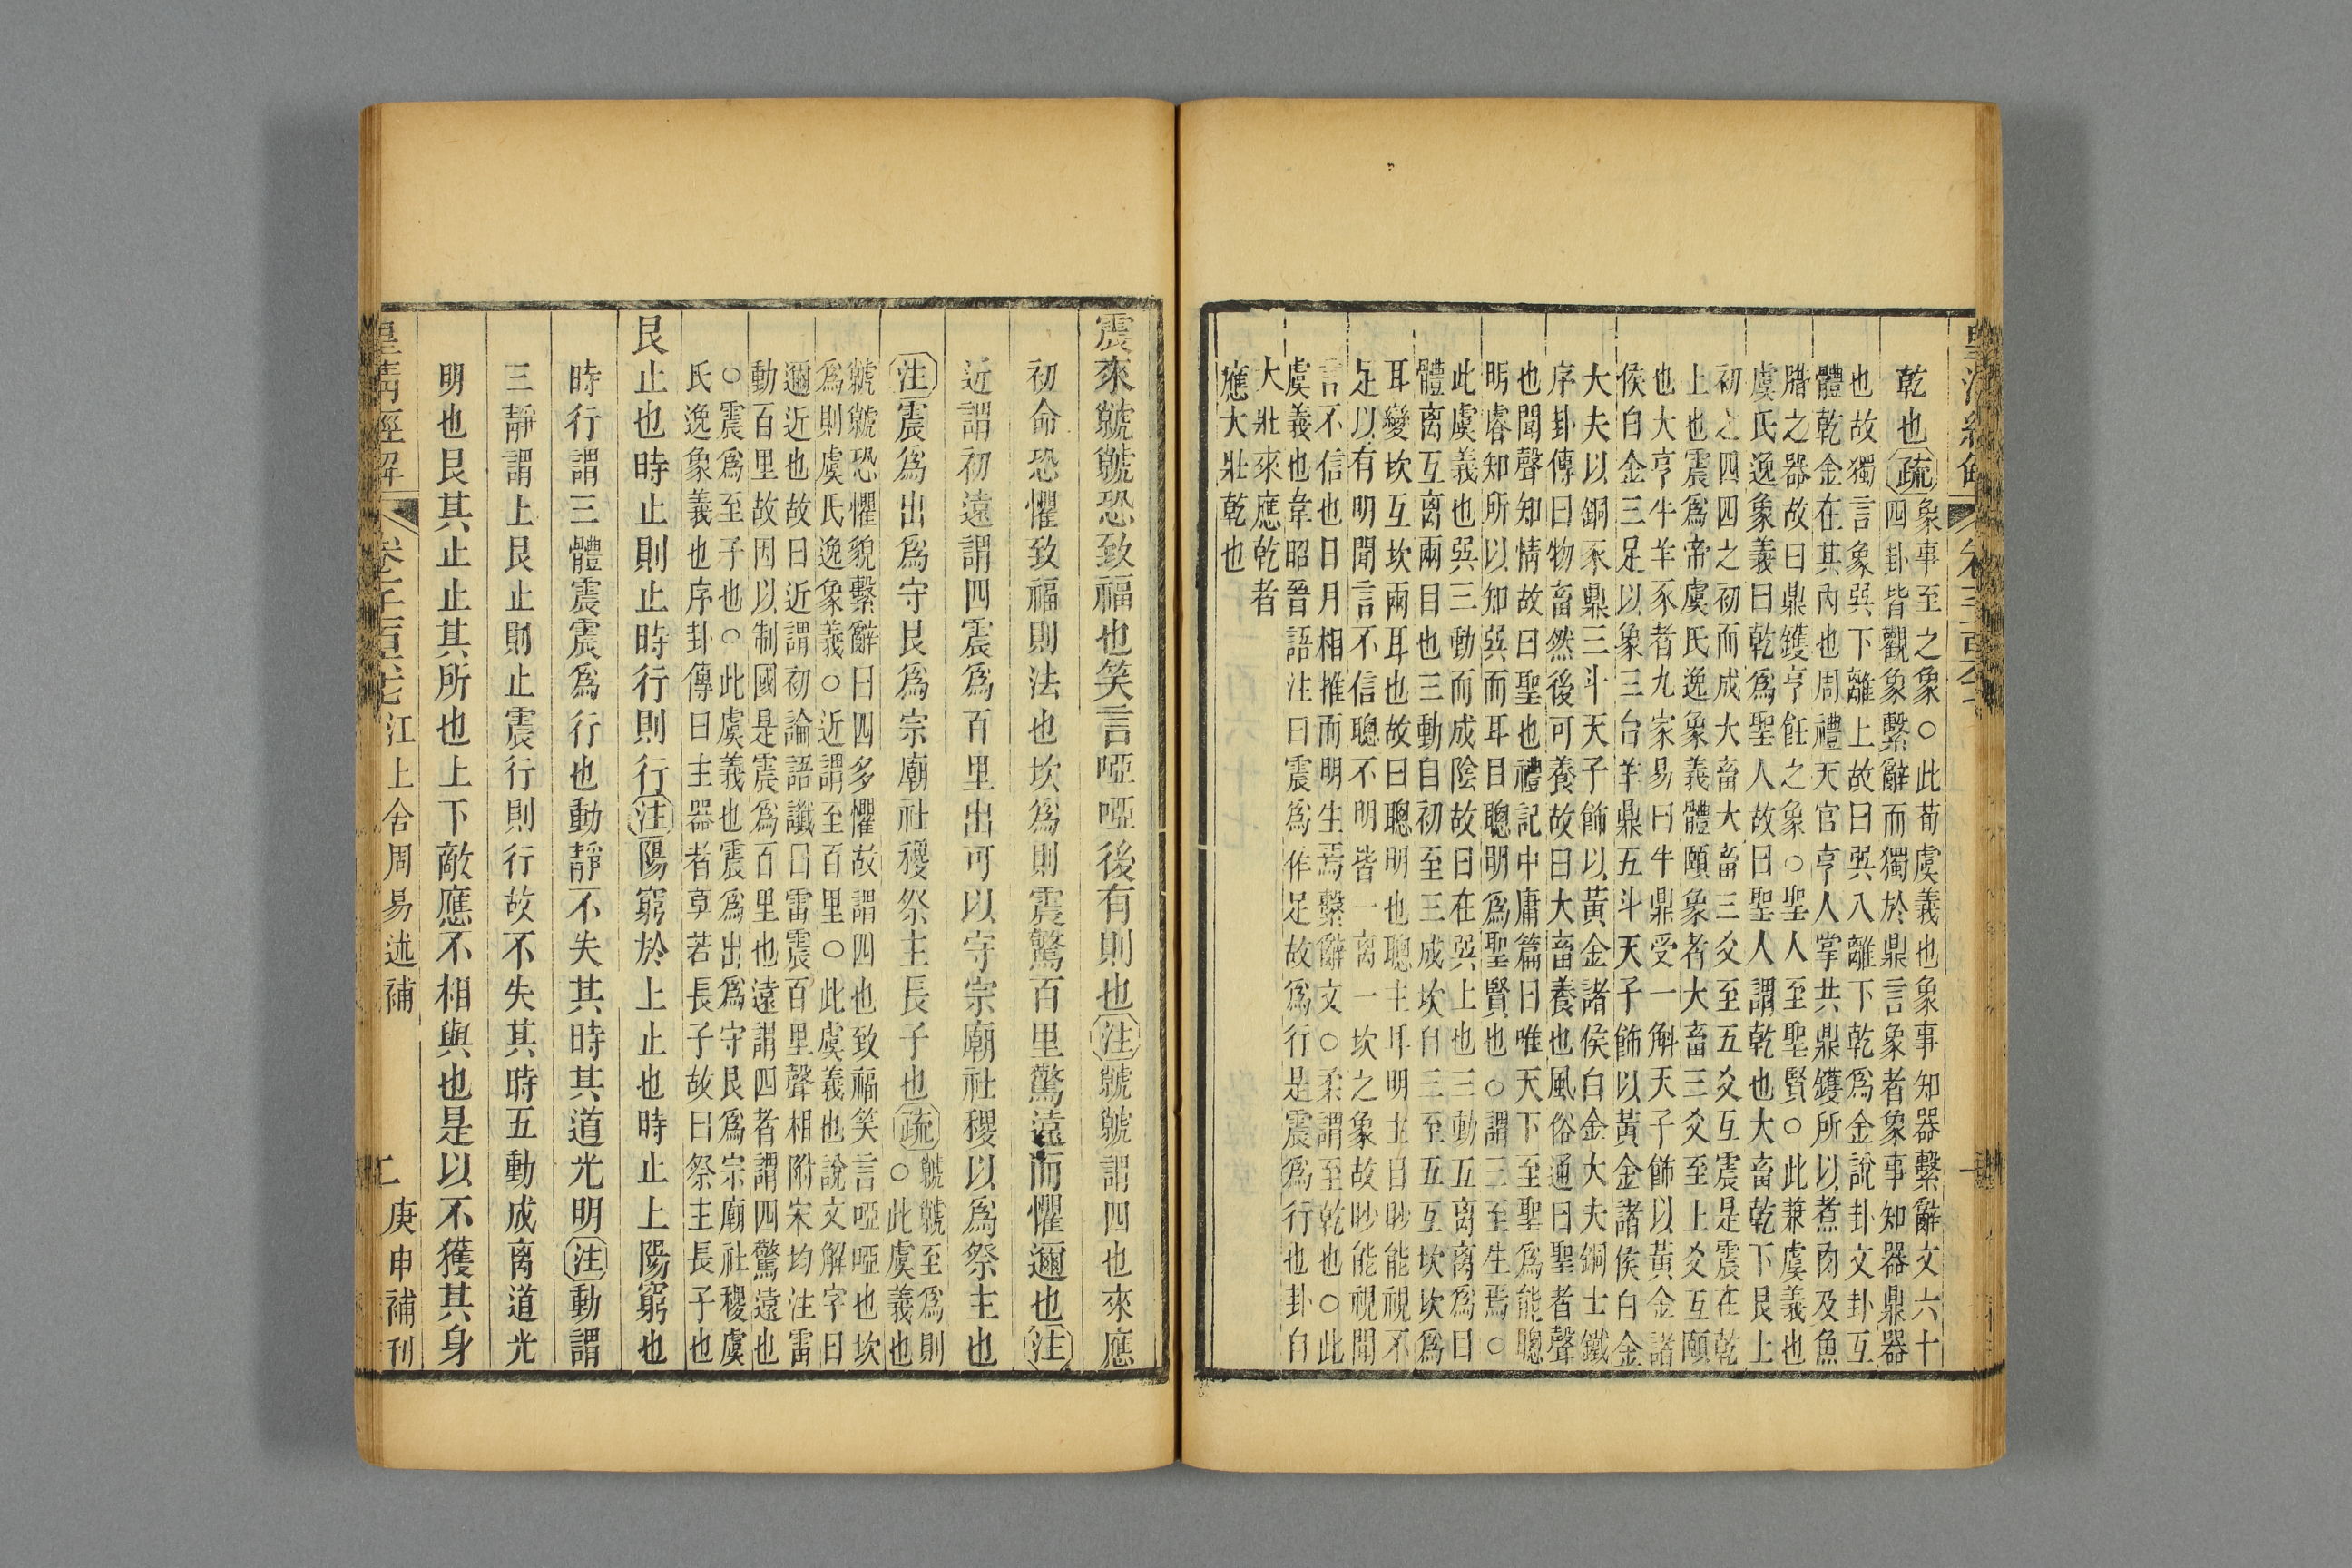 乾也疏象事至之象○此荀虞義也象事知器繫辭文六十
四卦皆觀象繫辭而獨於鼎言象者象事知器鼎器
也故獨言象巽下離上故曰巽入離下乾爲金說卦文卦互
體乾金在其內也周禮天官亨人掌共鼎鑊所以煮肉及魚
腊之器故曰鼎鑊亨飪之象○聖人至聖賢○此兼虞義也
虞氏逸象義曰乾爲聖人故曰聖人謂乾也大畜乾下艮上
初之四四之初而成大畜大畜三爻至五爻互震是震在乾
上也震爲帝虞氏逸象義體頤象者大畜三爻至上爻互頤
也大亨牛羊豕者九家易曰牛鼎受一斛天子飾以黃金諸
侯白金三足以象三台羊鼎五斗天子飾以黃金諸侯白金
大夫以銅豕鼎三斗天子飾以黃金諸侯白金大夫銅士鐵
序卦傳曰物畜然後可養故曰大畜養也風俗通曰聖者聲
也聞聲知情故曰聖也禮記中庸篇曰唯天下至聖爲能聰
明睿知所以知巽而耳目聰明爲聖賢也○謂三至生焉○
此虞義也巽三動而成陰故曰在巽上也三動五离离爲目
體离互离兩目也三動自初至三成坎自三至五互坎坎爲
耳變坎互坎兩耳也故曰聰明也聰主耳明主目眇能視不
足以有明聞言不信聰不明皆一离一坎之象故眇能視聞
言不信也日月相推而明生焉繫辭文○柔謂至乾也○此
虞義也韋昭晉語注曰震爲作足故爲行是震爲行也卦自
大壯來應乾者
應大壯乾也
震來虩虩恐致福也笑言啞啞後有則也注虩虩謂四也來應
初命恐懼致福則法也坎爲則震驚百里驚遠而懼邇也注
近謂初遠謂四震爲百里出可以守宗廟社稷以爲祭主也
注震爲出爲守艮爲宗廟社稷祭主長子也疏虩虩至爲則
○此虞義也
虩虩恐懼貌繫辭曰四多懼故謂四也致福笑言啞啞也坎
爲則虞氏逸象義○近謂至百里○此虞義也說文解字曰
邇近也故曰近謂初論語讖曰雷震百里聲相附宋均注雷
動百里故因以制國是震爲百里也遠謂四者謂四驚遠也
○震爲至子也○此虞義也震爲出爲守艮爲宗廟社稷虞
氏逸象義也序卦傳曰主器者莫若長子故曰祭主長子也
艮止也時止則止時行則行注陽窮於上止也時止上陽窮也
時行謂三體震震爲行也動靜不失其時其道光明注動謂
三靜謂上艮止則止震行則行故不失其時五動成离道光
明也艮其止止其所也上下敵應不相與也是以不獲其身
皇清經解 江上舍周易述補 二 庚申補刊